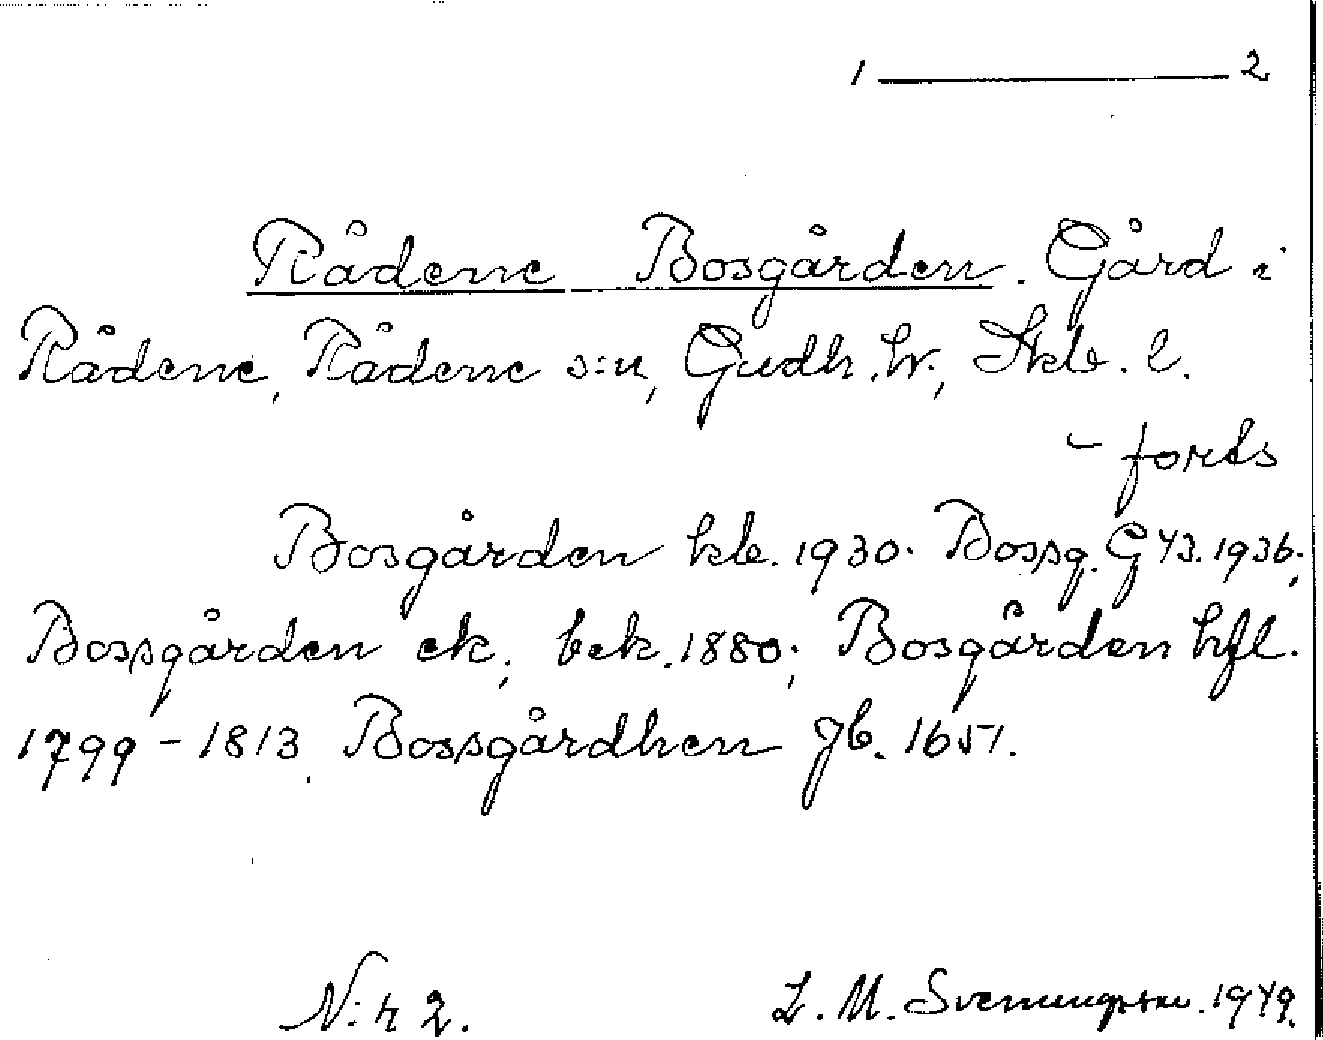 1 — 2
Rådene Bosgården. Gård i
Rådene, Rådene s:n, Gudh. hr., Skb. l.
– forts
Bosgården kb. 1930. Bossg. G 43. 1936;
Bossgården ek, bek. 1880; Bosgården hfl.
1799 – 1813, Bossgårdhen jb. 1651.
N:r 2. L. M. Svenungsson. 1949.